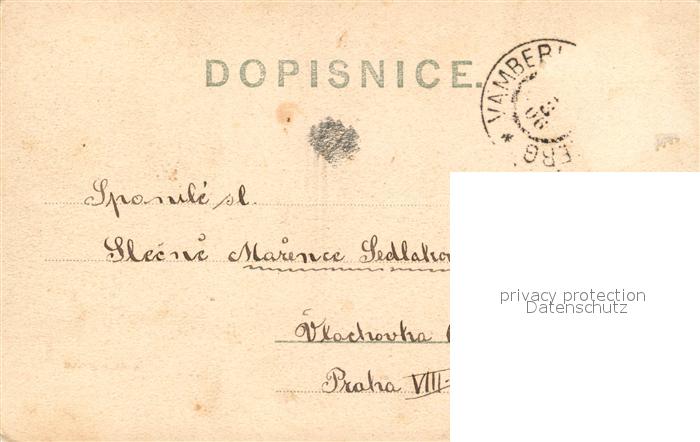 DOPISNICE.
VAMBER
* ERG
Spanilé sl.
Slečně Mařence Sedlakov
Vlachovka (
Praha VIII-
privacy protection
Datenschutz